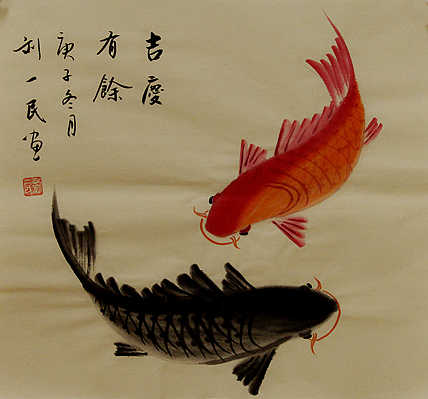 吉慶
有餘
庚子冬月
利一民画